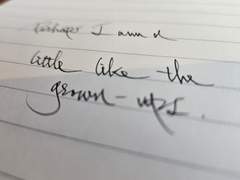 Perhaps I am a
little like the
grown-ups.